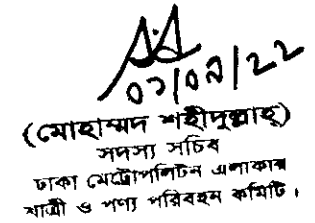 ০১/০৯/২২
(মোহাম্মদ শহীদুল্লাহ)
সদস্য সচিব
ঢাকা মেট্রোপলিটন এলাকার
যাত্রী ও পণ্য পরিবহন কমিটি।